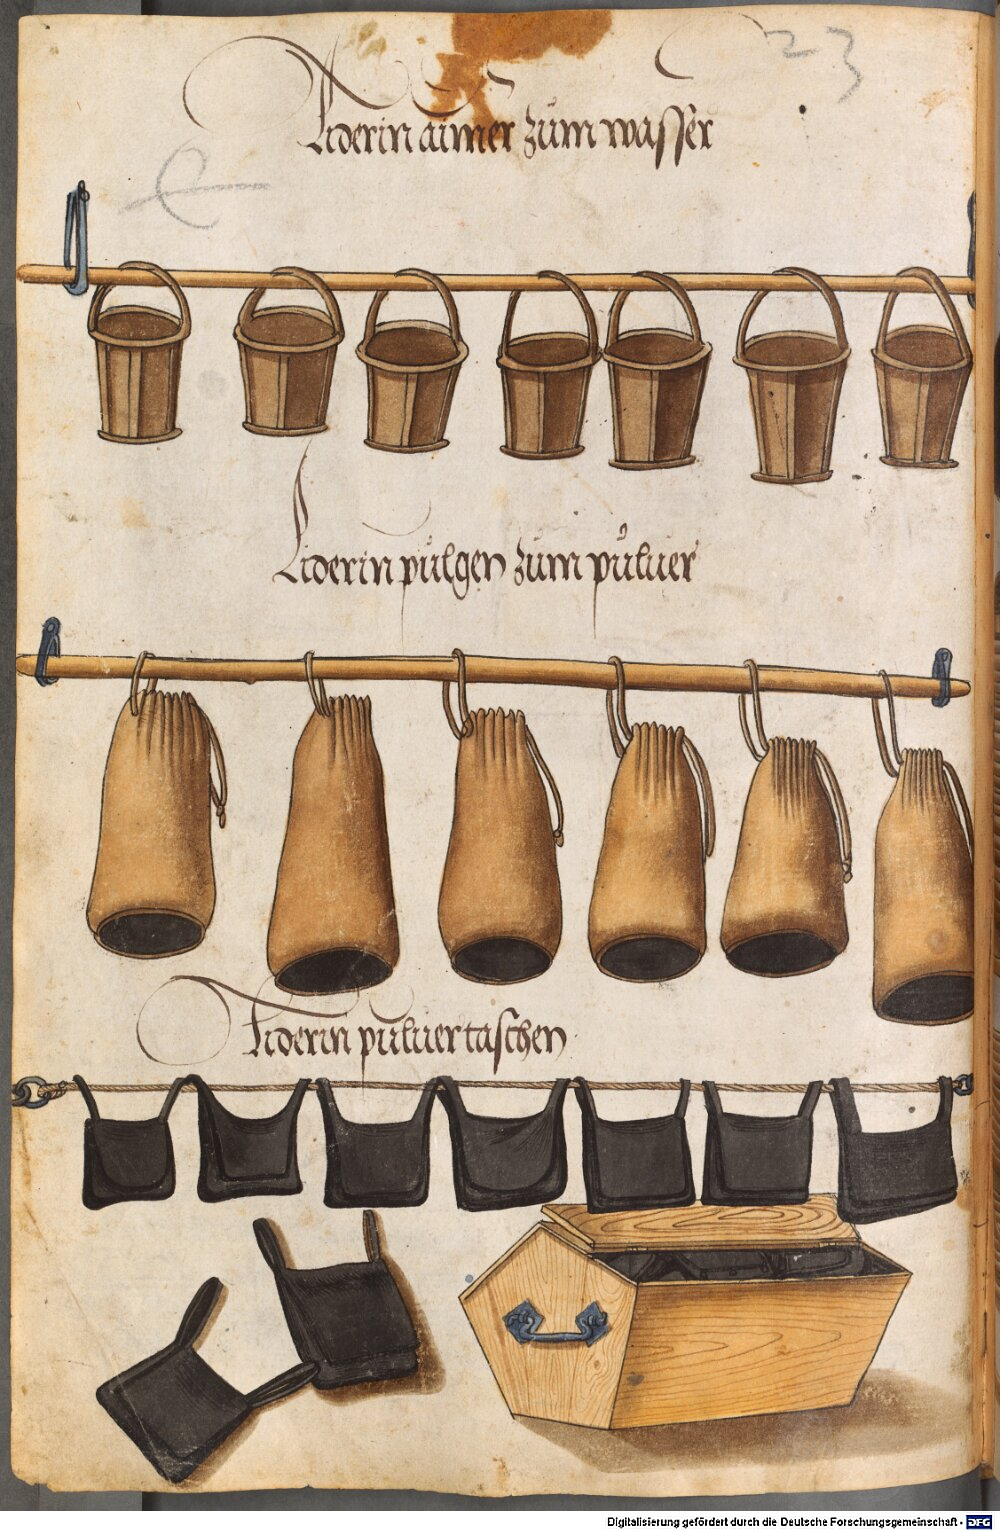 23
Liderin aimer zům wasser
Liderin půlgen zům půluer
Liderin půluertaschen
Digitalisierung gefördert durch die Deutsche Forschungsgemeinschaft - DFG